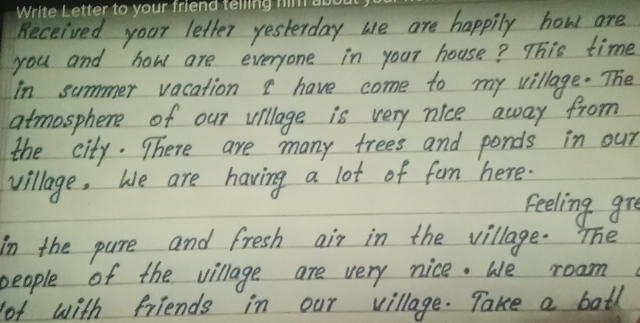 Write Letter to your friend telling him about your
Received your letter yesterday we are happily how are
you and how are everyone in your house? This time
in summer vacation I have come to my village. The
atmosphere of our village is very nice away from
the city. There are many trees and ponds in our
village. We are having a lot of fun here.
Feeling
in the pure and fresh air in the village. The
people of the village are very nice. We roam
lot with friends in our village. Take a